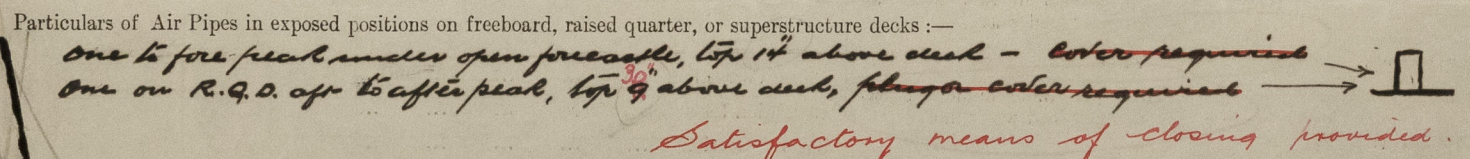 Particulars of Air Pipes in exposed positions on freeboard, raised quarter, or superstructure decks :—
One to fore peak under open forecastle, top 14" above deck – cover required
30"
One on R.Q.D. aft to after peak, top 9" above deck, plug or cover required
Satisfactory means of closing provided.